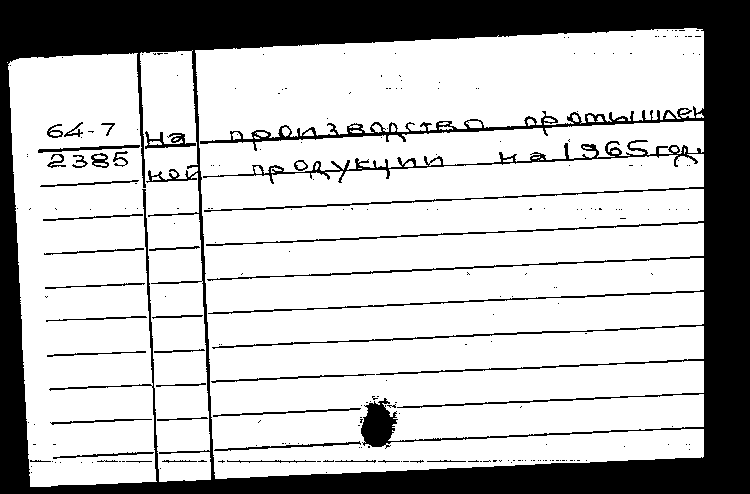 64-7 на производство промышлен
2385 ной продукции на 1965 год.